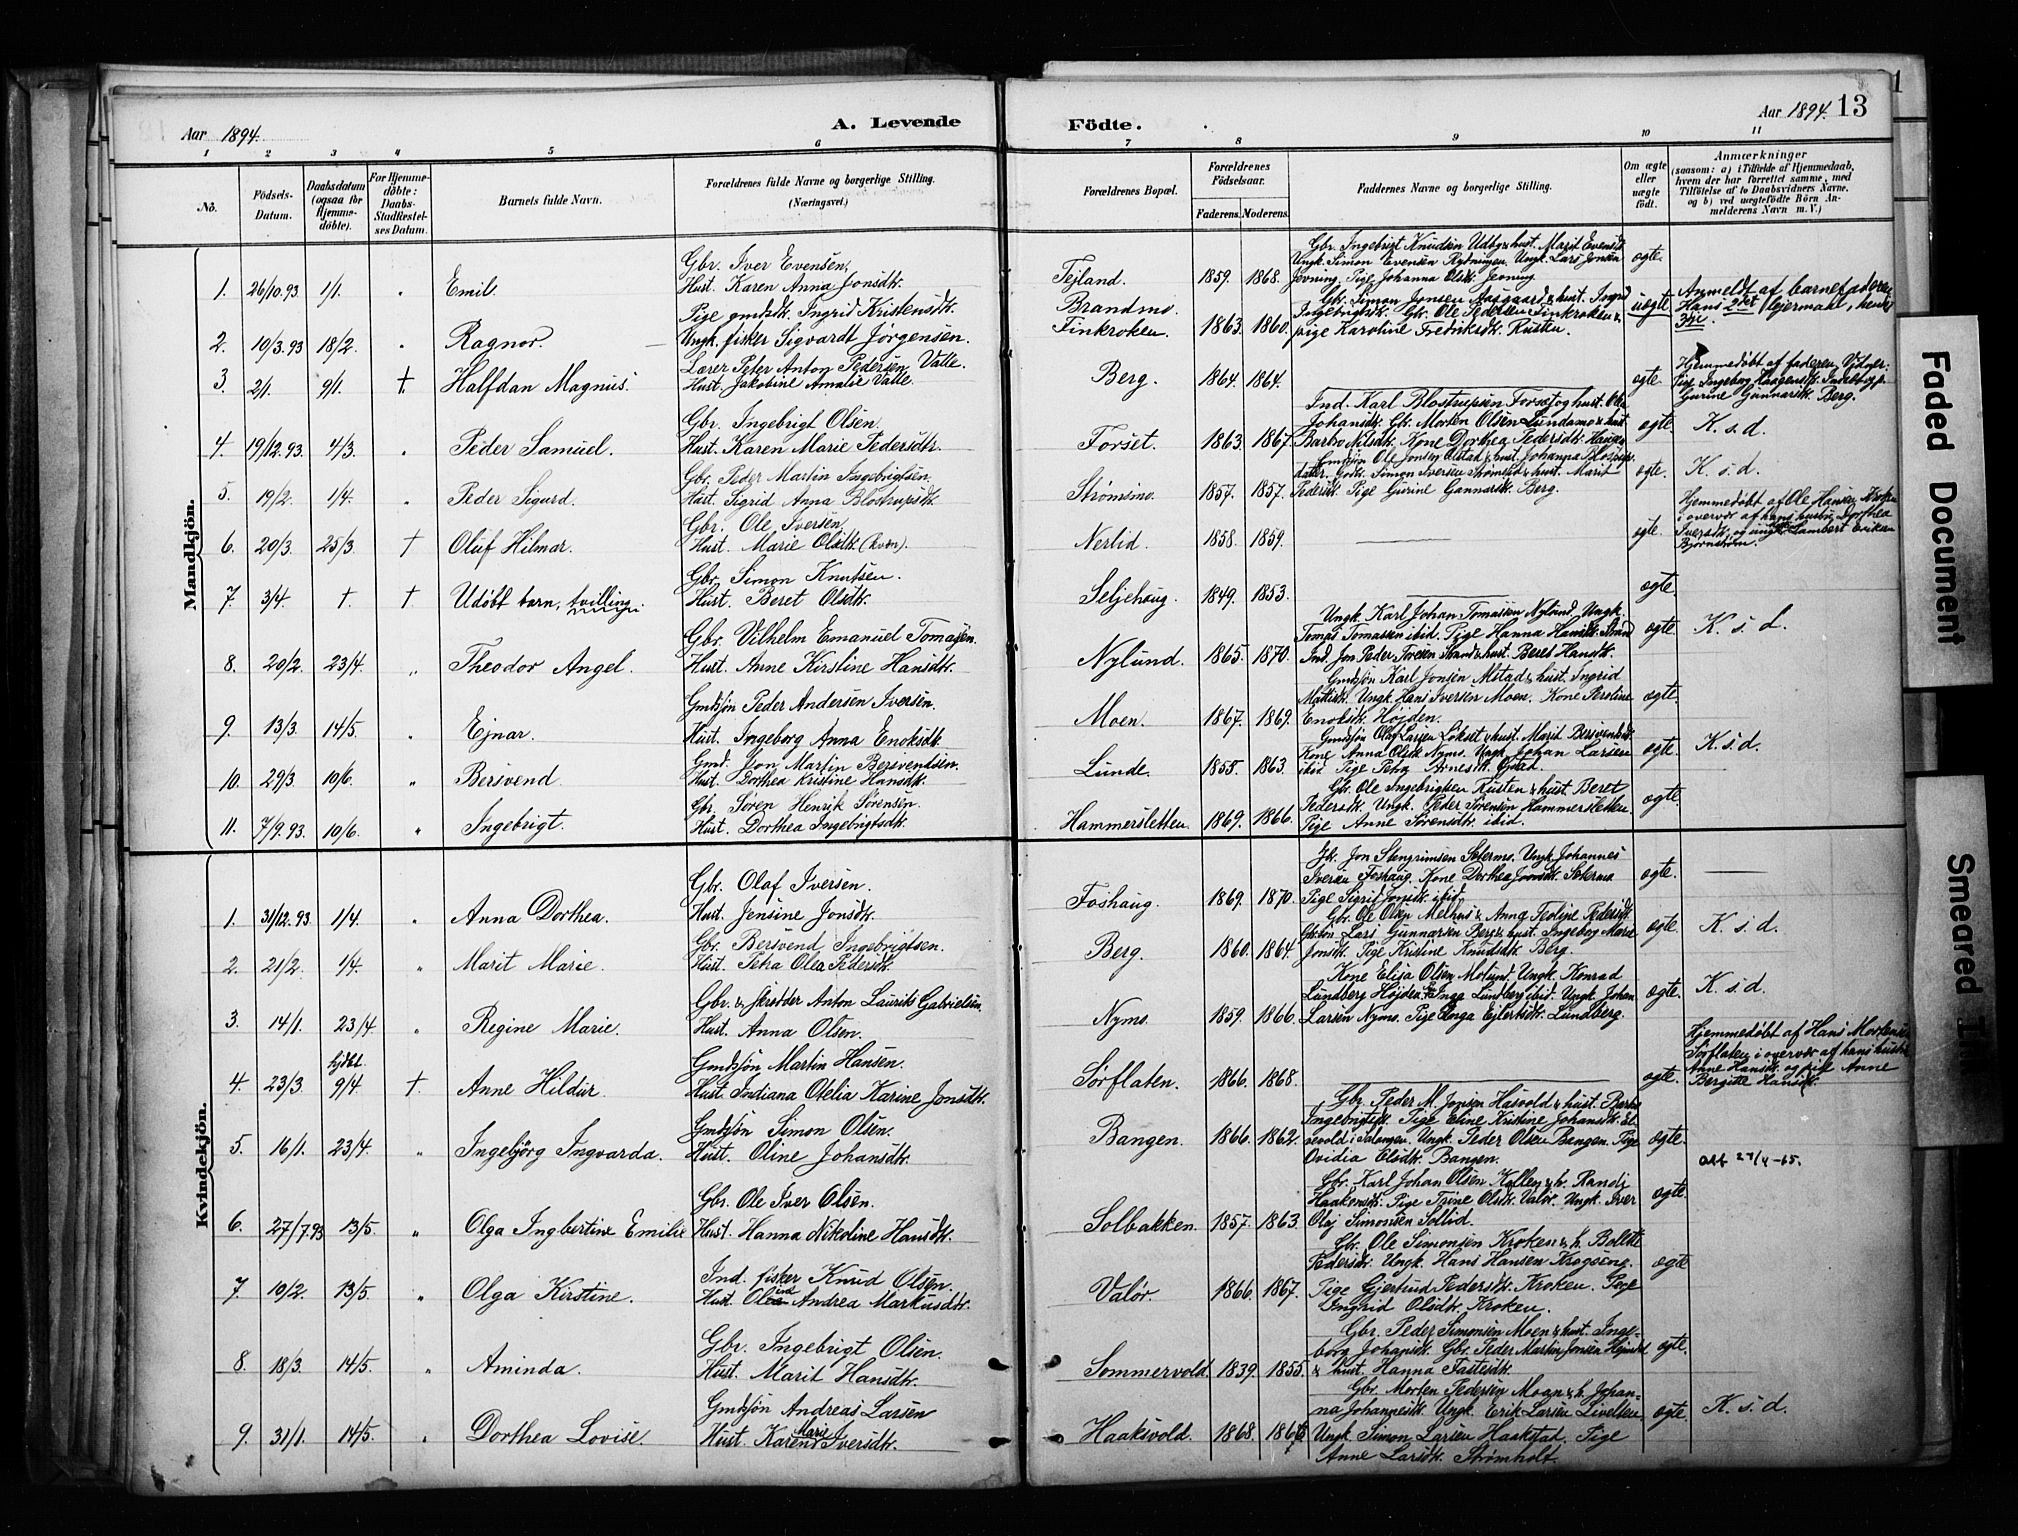 Aar 1894.
A. Levende
1 2 3 4 5 6
No.
Födsels-
Datum.
Daabsdatum
(ogsaa for
Hjemme-
döbte).
For Hjemme-
döbte:
Daabs-
Stadfæstel-
ses Datum.
Barnets fulde Navn.
Forældrenes fulde Navne og borgerlige Stilling.
(Næringsvei.)
Mandkjön.
Gbr. Iver Evensen.
1. 26/10.93 1/1. " Emil. Hust. Karen Anna Jonsdtr.
Pige gmdsdtr. Ingrid Kristensdtr.
2. 10/3.93 18/2. " Ragnor. Ungk. fisker Sigvardt Jørgensen.
Lærer Peter Anton Pedersen Valle.
3. 2/1. 9/1. † Halfdan Magnus. Hust. Jakobine Amalie Valle.
Gbr. Ingebrigt Olsen.
4. 19/12.93 4/3. " Peder Samuel. Hust. Karen Marie Pedersdtr.
Gbr. Peder Martin Ingebrigtsen.
5. 19/2. 1/4. " Peder Sigurd. Hust. Sigrid Anna Blostrupsdtr.
Gbr. Ole Iversen.
6. 20/3. 25/3. † Oluf Hilmar. Hust. Marie Olsdtr. (kvæn).
Gbr. Simon Knutsen.
7. 3/4. † † Udøbt barn, tvilling. Hust. Beret Olsdtr.
Gbr. Vilhelm Emanuel Tomasen.
8. 20/2. 23/4. " Theodor Angel. Hust. Anne Kirstine Hansdtr.
Gmdsjøn Peder Andersen Iversen.
9. 13/3. 14/5. " Ejnar. Hust. Ingeborg Anna Enoksdtr.
Gmd. Jon Martin Bersvendsen.
10. 29/3. 10/6. " Bersvend. Hust. Dorthea Kristine Hansdtr.
Gbr. Sören Henrik Sörensen.
11. 7/9.93. 10/6. " Ingebrigt. Hust. Dorthea Ingebrigtsdtr.
Kvindekjön.
Gbr. Olaf Iversen.
1. 31/12.93 1/4. " Anna Dorthea. Hust. Jensine Jonsdtr.
Gbr. Bersvend Ingebrigtsen.
2. 21/2. 1/4. " Marit Marie. Hust. Petra Olea Pedersdtr.
Gbr. & skrædder Anton Laurits Gabrielsen.
3. 14/1. 23/4. " Regine Marie. Hust. Anna Olsen.
hjdbt. Gmdsjøn Martin Hansen.
4. 23/3. 9/4. † Anne Hildur. Hust. Indiana Otelia Karine Jonsdtr.
Gmdsjøn Simon Olsen.
5. 16/1. 23/4. " Ingebjörg Ingvarda. Hust. Oline Johansdtr.
Gbr. Ole Iver Olsen.
6. 27/7.93 13/5. " Olga Ingbertine Emilie Hust. Hanna Nikoline Hansdtr.
Ind. fisker Knud Olsen.
7. 10/2. 13/5. " Olga Kirstine. Hust. Andrea Markusdtr.
Gbr. Ingebrigt Olsen.
8. 18/3. 14/5. " Aminda. Hust. Marit Hansdtr.
Gmdsjøn Andreas Larsen
9. 31/1. 14/5. " Dorthea Lovise. Hust. Karen Marie Iversdtr.
Födte.
Aar 1894. 13
7 8 9 10 11
Forældrenes Bopæl.
Forældrenes
Födselsaar.
Faderens. Moderens.
Faddernes Navne og borgerlige Stilling.
Om ægte
eller
uægte
födt.
Anmærkninger
(saasom: a) i Tilfælde af Hjemmedaab,
hvem der har forrettet samme, med
Tilföielse af to Daabsvidners Navne.
og b) ved uægtefödte Börn An-
melderens Navn m. V.)
Gbr. Ingebrigt Knudsen Udby & hust. Marit Evensdtr.
Ungk. Simon Evensen Rydningen. Ungk. Lars Jonsen ægte.
Fejland. 1859. 1868. Jevning. Pige Johanna Olsdtr. Jevning.
Brandmo. Gbr. Simon Jonsen Aasgaard & hust. Ingrid uægte Anmeldt af barnefaderen
Finkroken. 1863. 1860. Ingebrigtsdtr. Gbr. Ole Pedersen Finkroken & Hans 2det lejermaal, hendes
pige Karoline Fredriksdtr. Rusten. 3die.
Berg. 1864. 1864. ægte. Hjemmedøbt af faderen. Vidner:
Pige Ingeborg Haagensdtr.
Gurine Gunnarsdtr. Berg.
Ind. Karl Blostrupsen Forset og hust.
Johansdtr. Gbr. Morten Olsen Lundamo & hust. ægte. K. s. d.
Forset. 1863. 1867. Barbro Nilsdtr. Kone Dorthea Pedersdtr. Haugen
Gmdsjøn Ole Jonsen Olstad & hust. Johanna Blostrups-
dater. Gbr. Simon Iversen Strømsmo & hust. Marit ægte. K. s. d.
Strømsmo. 1857. 1857. Pedersdtr. Pige Gurine Gunnarsdtr. Berg.
Nerlid. 1858. 1859. ægte. Hjemmedøbt af Ole Hansen Kroken
i overvær af hans hustru Dorthea
Iversdtr. og ungk. Lambert Eriksen
Bjørnstrøm.
Seljehaug. 1849. 1853. ægte
Ungk. Karl Johan Tomassen Nylund. Ungk.
Tomas Tomassen ibid. Pige Hanna Hansdtr. Strand ægte. K. s. d.
Nylund. 1865. 1870. Ind. Jon Peder Toresen Strand & hust. Beret Hansdtr.
Gmdsjøn Karl Jonsen Melstad & hust. Ingrid
Ungk. Hans Iversen Moen. Kone Seroline ægte.
Moen. 1867. 1869. Enoksdtr. Højden.
Gmdsjøn Olaf Larsen Løkset & hust. Marit Bersvendsdtr.
Kone Anna Olsdtr. Nyms. Ungk. Johan Larsen ægte. K. s. d.
Lunde. 1858. 1863. ibid. Pige Petra Arnesdtr.
Gbr. Ole Ingebrigtsen Rusten & hust. Beret
Pedersdtr. Ungk. Peder Sørensen Hammersletten. ægte.
Hammersletten. 1869. 1866. Pige Anne Sørensdtr. ibid.
Gbr. Jon Stengrimsen Sætermo. Ungk. Johannes
Iversen Foshaug. Kone Dorthea Jonsdtr. Sætermo ægte.
Foshaug. 1869. 1870. Pige Sigrid Jonsdtr. ibid.
Gbr. Ole Olsen Melhus & Anna Feoline Pedersdtr.
Lars Gunnarsen Berg & hust. Ingeborg Marie ægte. K. s. d.
Berg. 1860. 1864. Jonsdtr. Pige Kristine Knudsdtr. Berg.
Kone Elisa Olsen Molund. Ungk. Konrad
Lundberg Højden. Inga Lundberg ibid. Ungk. Johan ægte. K. s. d.
Nyms. 1859. 1866. Larsen Nyms. Pige Inga Ejlertsdtr. Lundberg.
Sørflaten. 1866. 1868. ægte. Hjemmedøbt af Hans Mortensen
Sørflaten i overvær af hans hustru
Anne Hansdtr. og pige Anne
Bergitte Hansdtr.
Gbr. Peder M. Jonsen Hasvold & hust. Barbro
Ingebrigtsdtr. Pige Eline Kristine Johansdtr. El-
Bangen. 1866. 1862. vevold i Salangen. Ungk. Peder Olsen Bangen. Pige ægte.
Ovidia Elisdtr. Bangen. att 27/4-65.
Gbr. Karl Johan Olsen Kollen & h. Randi
Haakensdtr. Pige Trine Olsdtr. Valør. Ungk. Iver ægte.
Solbakken. 1857. 1863. Olaj Simonsen Sollid.
Gbr. Ole Simonsen Kroken & h. Bolette
Pedersdtr. Ungk. Hans Hansen Krogseng. ægte
Valør. 1866. 1867. Pige Gjertrud Pedersdtr. Kroken. Pige
Ingrid Olsdtr. Kroken.
Gbr. Peder Simonsen Moen & hust. Inge-
borg Johansdtr. Gbr. Peder Martin Jonsen ægte.
Sommervold. 1839. 1855. & hust. Hanna Fastesdtr.
Gbr. Morten Pedersen Moan & h. Johan-
na Johannesdtr. Ungk. Erik Larsen Livelten. ægte. K. s. d.
Haaksvold. 1868. Ungk. Simon Larsen Haakstad. Pige
Anne Larsdtr. Strømholt.
Faded Document
Smeared Ink